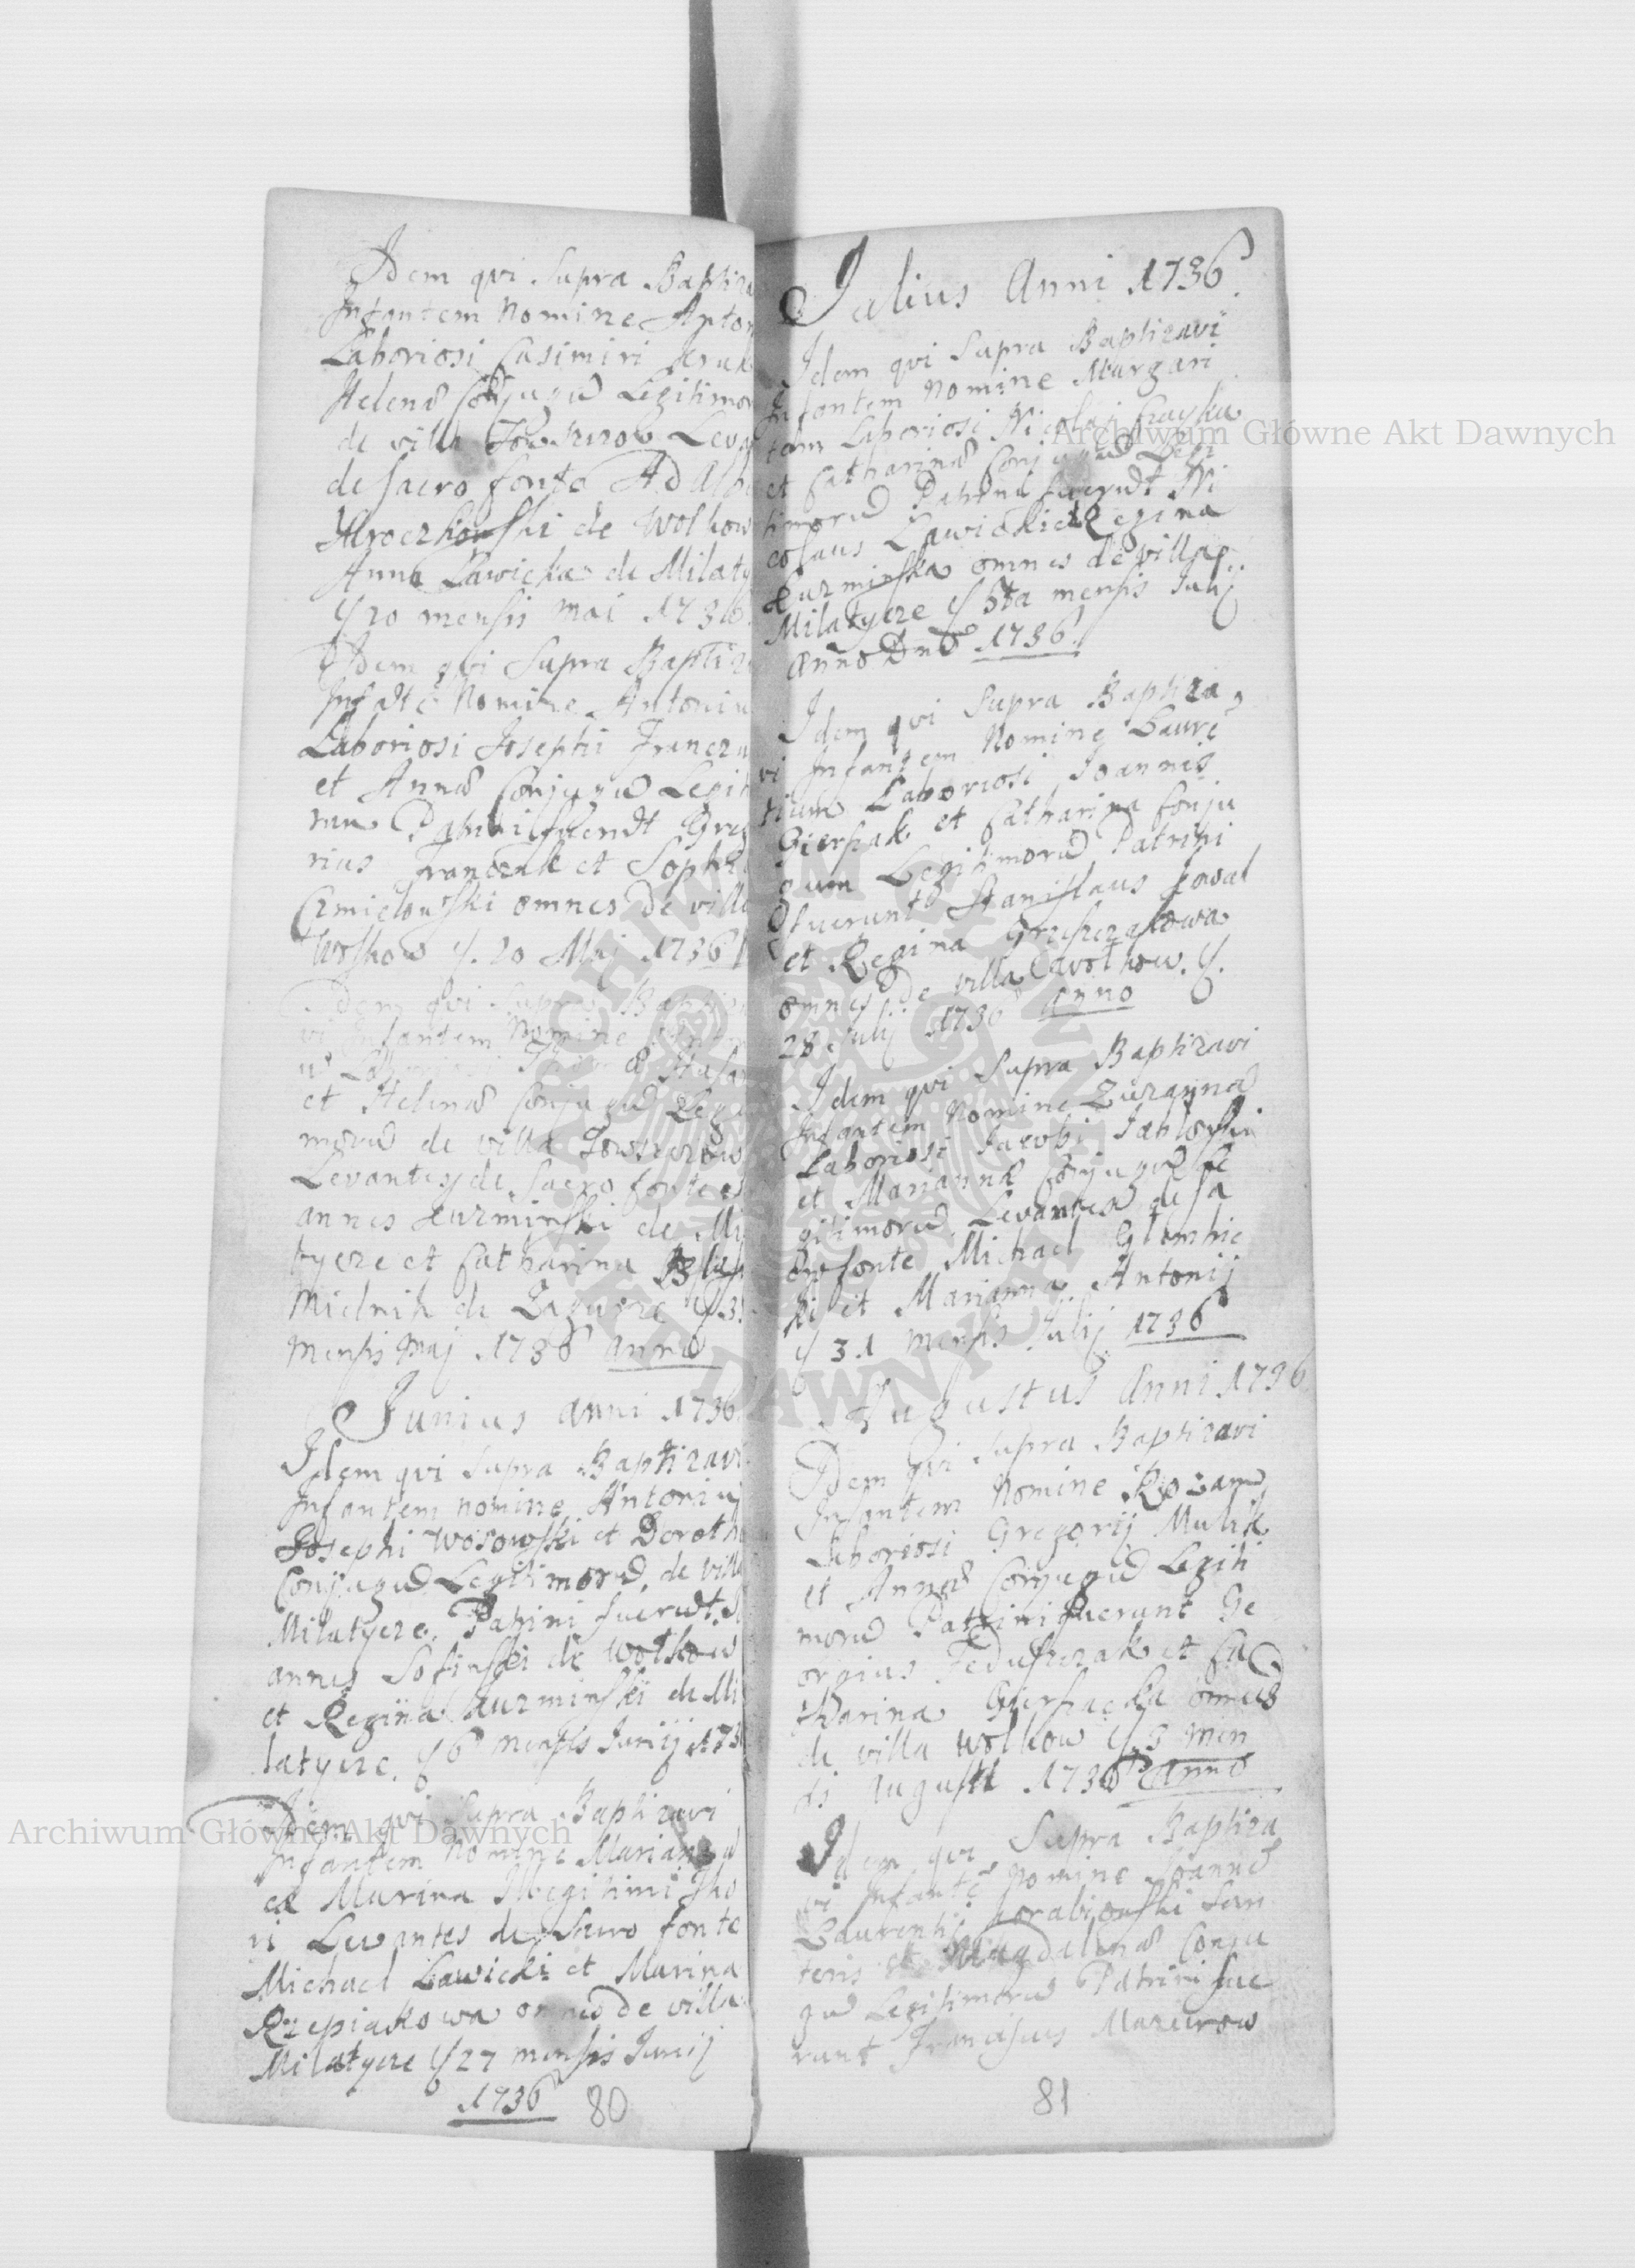 Idem qui Supra Baptiza
Infantem Nomine Anton
Laboriosi Casimiri
Helenæ Conjugũ Legitimor
de villa Leva
de sacro fonte Adalbe
de Wolkow
Anna Lawicka de Milaty
20 mensis Mai 1736
Idem qui Supra Baptiz
Nomine Antoniu
Laboriosi Josephi Francza
et Annæ Conjugũ Legit
rum Patrini fuerũt Greg
rius Franczak et Sophi
omnes de villa
Wolkow 20 Maj 1736
Idem qui Supra Baptiza
vi Infantem Nomine
et Helenæ Conjugũ Legi
morũ de villa
Levantes de Sacro fonte
annes Kurminski de Mi
tycze et Catharina
Mielnik de
Mensis Maj 1736 anno
Junius anni 1736
Idem qui Supra Baptizavi
Infantem nomine Antoniu
Josephi Wosowski et Doroth
Conjugũ Legitimorũ de villa
Milatycze. Patrini fuerũt
annes Sosinski de Wolkow
et Regina Kurminski de Mi
latycze. 6 mensis Junij 173
Idem qui Supra Baptizavi
Infantem Nomine Mariannã
ex Marina Illegitimi Tho
ri Levantes de Sacro fonte
Michael Lawicki et Marina
Rzepiakowa omnes de villa
Milatycze 27 mensis Junij
1736 80
Julius Anni 1736
Idem qui Supra Baptizavi
Infantem Nomine Margari
tam Laboriosi Nicolai
et Catharinæ Conjugũ Legi
timorũ Patrini fuerũt Ni
colaus Lawicki et Regina
Kurminska omnes de villa
Milatycze 5ta mensis Julij
Anno Dni 1736
Idem qui Supra Baptiza
vi Infantem Nomine Laurẽ
tium Laboriosi Joannis
Gierszak et Catharina Conju
gum Legitimorũ Patrini
fuerunt Stanislaus Kowal
et Regina
omnes de villa Wolkow.
28 Julij 1736 Anno
Idem qui Supra Baptizavi
Infantem Nomine Zuzannã
Laboriosi Jacobi Jablonski
et Mariannæ Conjugũ Le
gitimorũ Levantes de sa
fonte Michael Glembic
ki et Marianna Antonij
31 mensis Julij 1736
Augustus Anni 1736
Idem qui Supra Baptizavi
Infantem Nomine Rozam
Laboriosi Gregorij Mulik
et Annæ Conjugũ Legiti
morũ Patrini fuerunt Ge
orgius Feduszczak et Ca
tharina Gierszacka omnes
de villa Wolkow 3 men
sis Augusti 1736 Anno
Idem qui Supra Baptiza
vi Infantẽ nomine Joannẽ
Laurentij
et Magdalenæ Conju
gũ Legitimorũ Patrini fue
runt Franciscus Mazurow
81
Archiwum Główne Akt Dawnych
Archiwum Główne Akt Dawnych
ARCHIWUM GŁÓWNE AKT DAWNYCH